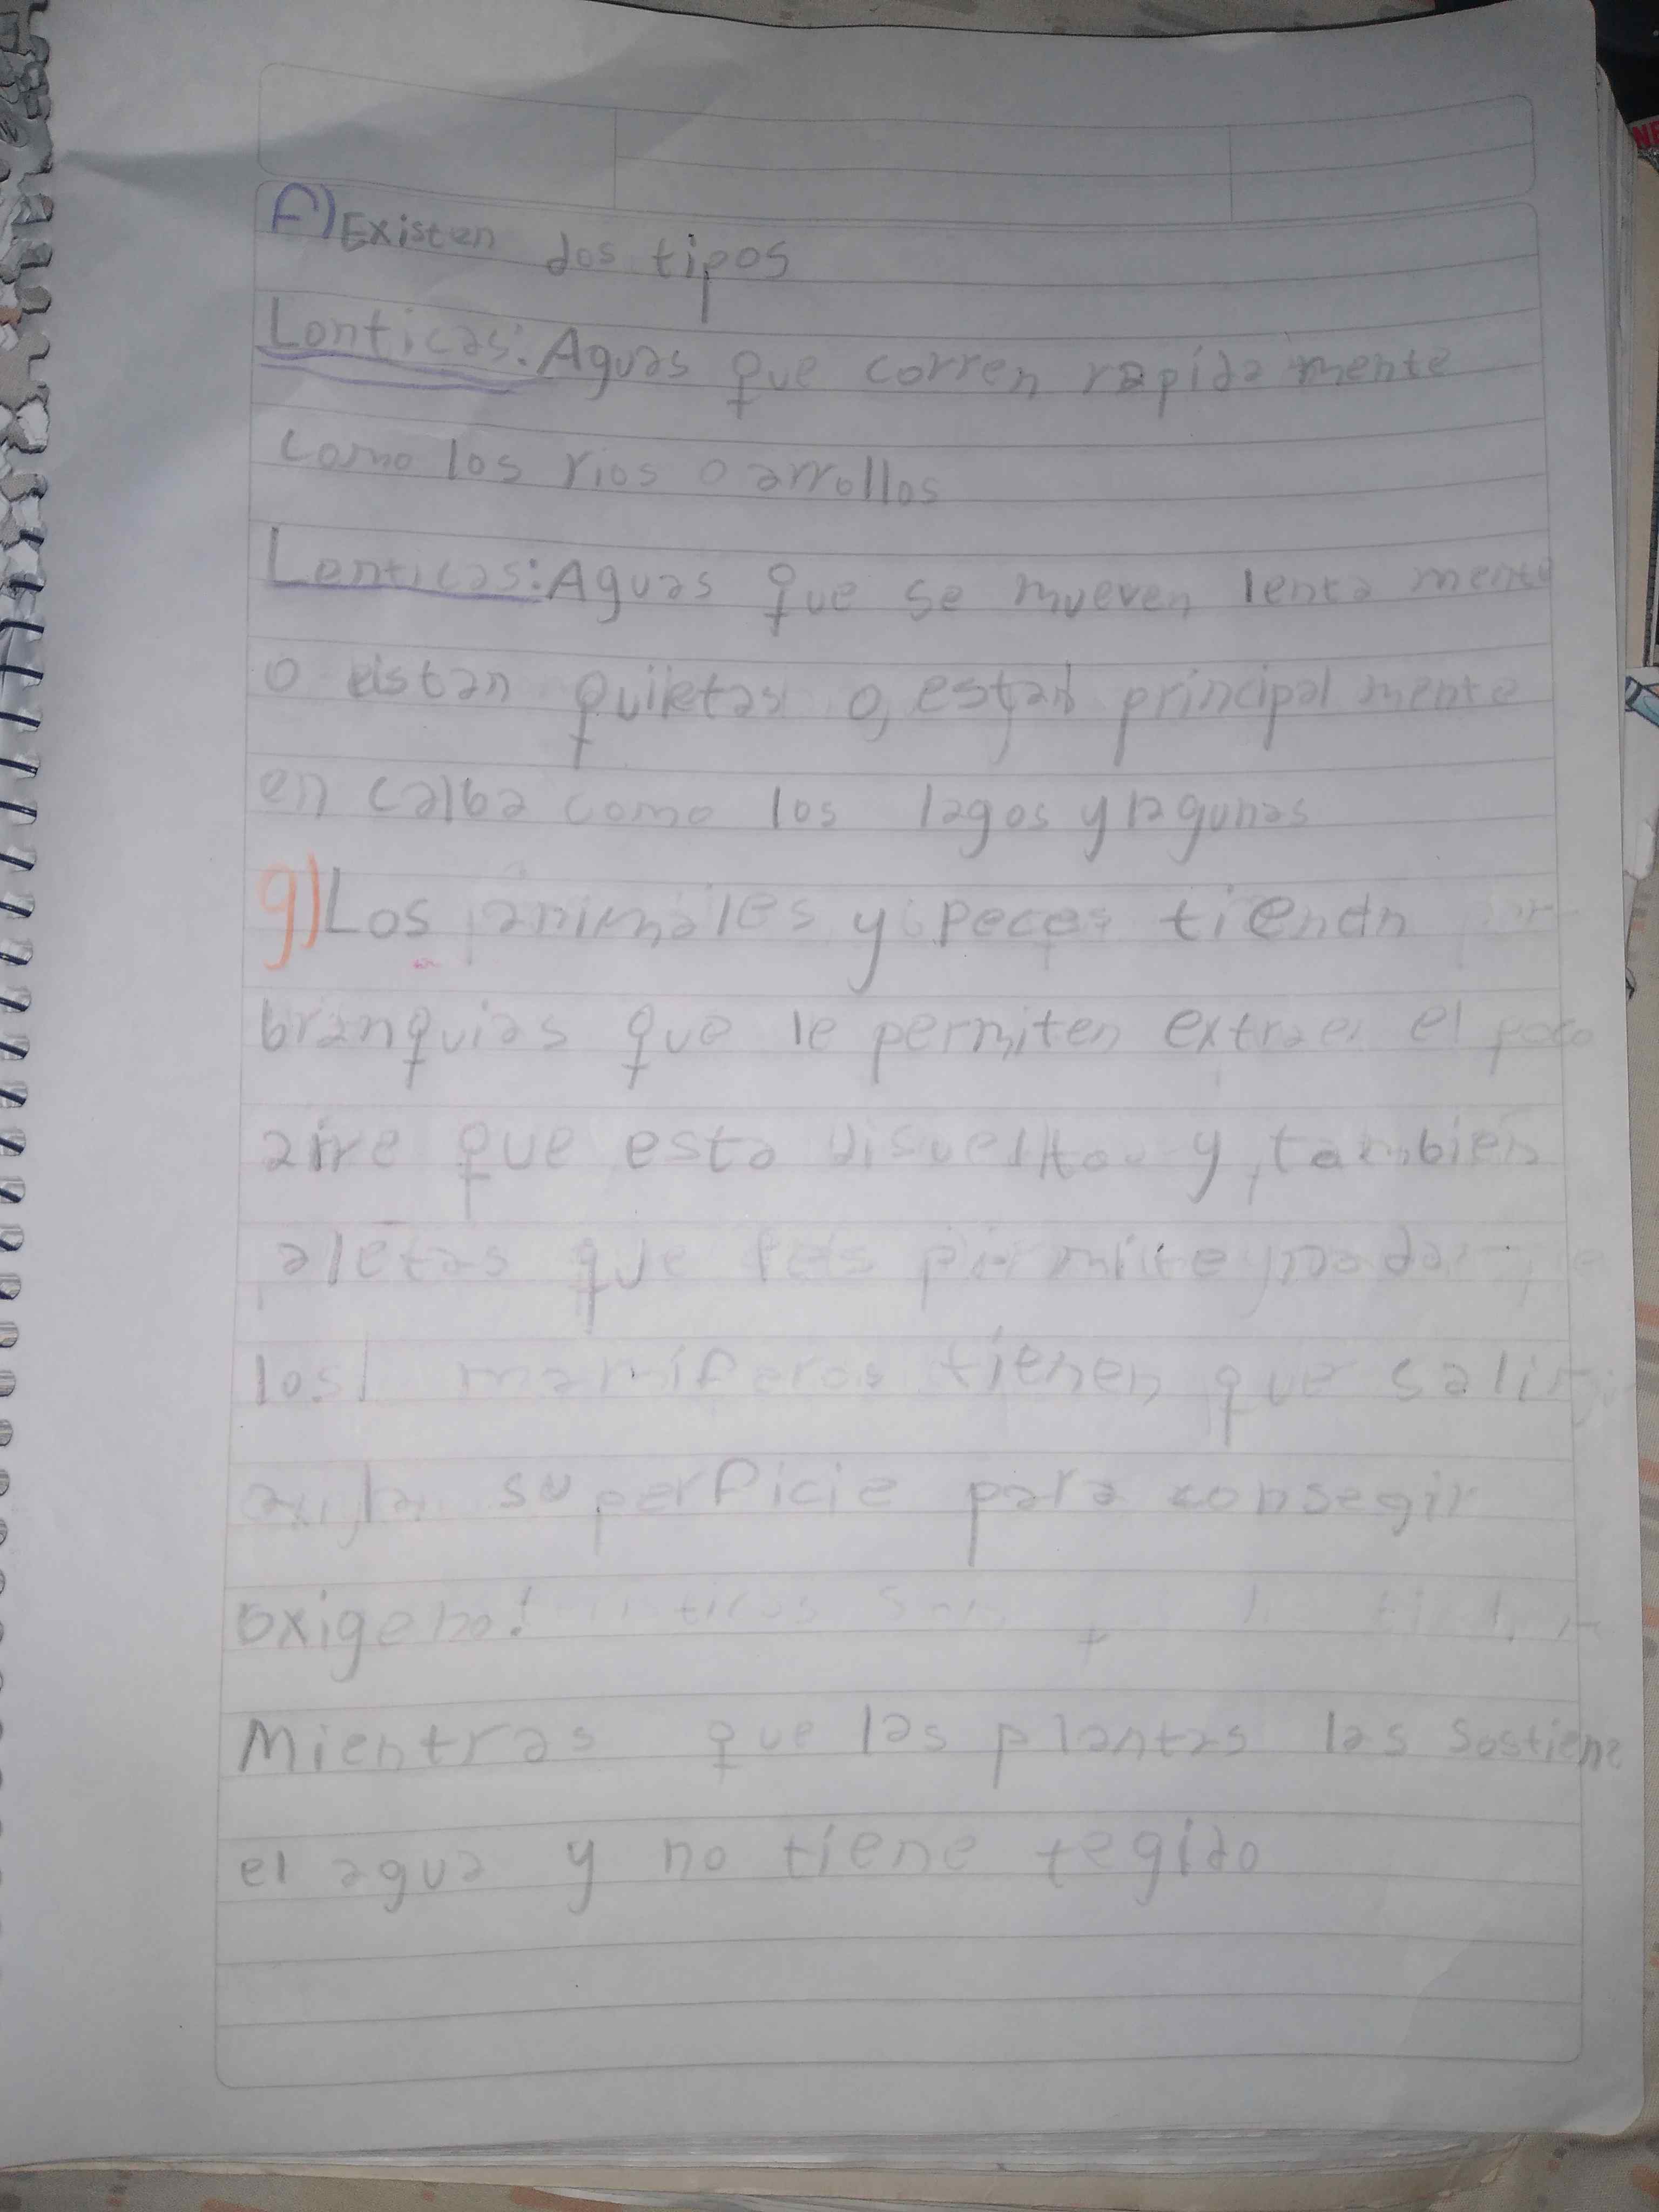 F) Existen dos tipos
Lonticas: Aguas que corren rapida mente
como los rios o arrollos
Lenticas: Aguas que se mueven lenta mente
o estan quietas o, estan principal mente
en calba como los lagos y lagunas
g) Los animales y peces tienen
branquias que le permiten extraer el poco
aire que esta disuelto y también
aletas que les permite nadar
los mamiferos tienen que salir
a la superficie para consegir
oxigeno!
Mientras que las plantas las sostiene
el agua y no tiene tegido